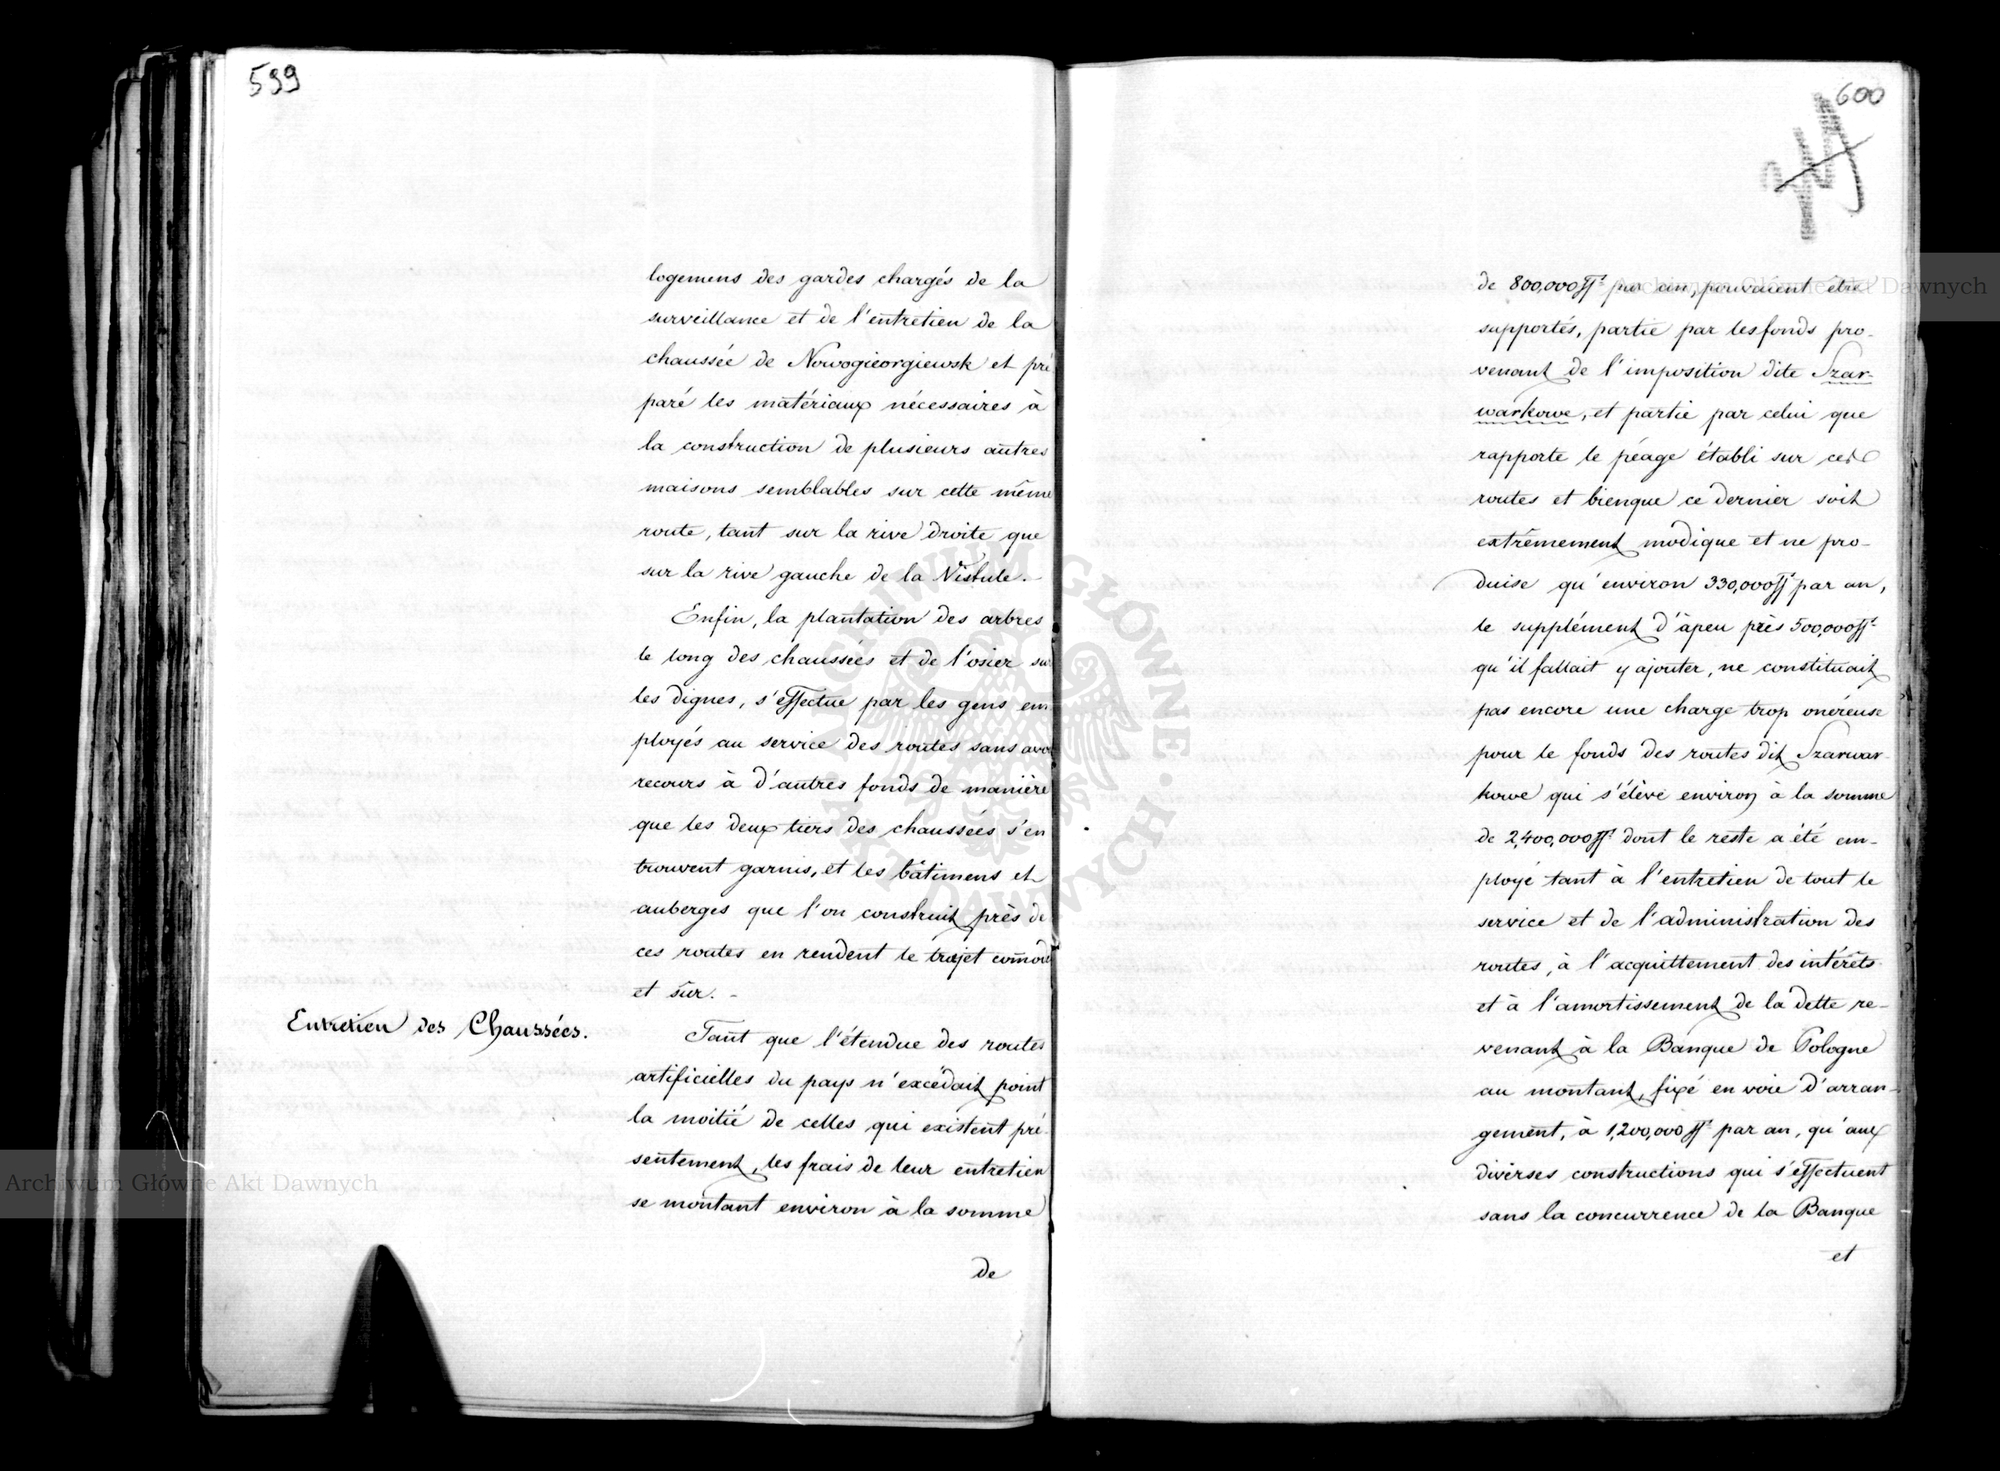 599
logemens des gardes chargés de la
surveillance et de l'entretien de la
chaussée de Nowogieorgiewsk et pré
paré les matériaux nécessaires à
la construction de plusieurs autres
maisons semblables sur cette même
route, tant sur la rive droite que
sur la rive gauche de la Vistule. -
Enfin, la plantation des arbres
le long des chaussées et de l'osier sur
les digues, s'effectue par les gens em
ployés au service des routes sans avoir
recours à d'autres fonds de manière
que les deux tiers des chaussées s'en
trouvent garnis, et les bâtimens et
auberges que l'on construit près de
ces routes en rendent le trajet comode
et sûr. -
Entretien des Chaussées.
Tant que l'étendue des routes
artificielles du pays n'excédait point
la moitié de celles qui existent pré-
sentement, les frais de leur entretien
se montant environ à la somme
de
600
de 800,000 ff par an, pouvaient être
supportés, partie par les fonds pro-
venant de l'imposition dite Szar-
warkowe, et partie par celui que
rapporte le péage établi sur ces
routes et bienque ce dernier soit
extrêmement modique et ne pro-
duise qu'environ 330,000 ff par an,
le supplément d'àpeu près 500,000 ff
qu'il fallait y ajouter, ne constituait
pas encore une charge trop onéreuse
pour le fonds des routes dit Szarwar-
kowe qui s'élève environ a la somme
de 2,400,000 ff dont le reste a été em-
ployé tant à l'entretien de tout le
service et de l'administration des
routes, à l'acquittement des intérêts
et à l'amortissement de la dette re-
venant à la Banque de Pologne
au montant, fixé en voie d'arran-
gement, à 1,200,000 ff par an, qu'aux
diverses constructions qui s'effectuent
sans la concurrence de la Banque
et
Archiwum Główne Akt Dawnych
Archiwum Główne Akt Dawnych
ARCHIWUM GŁÓWNE AKT DAWNYCH